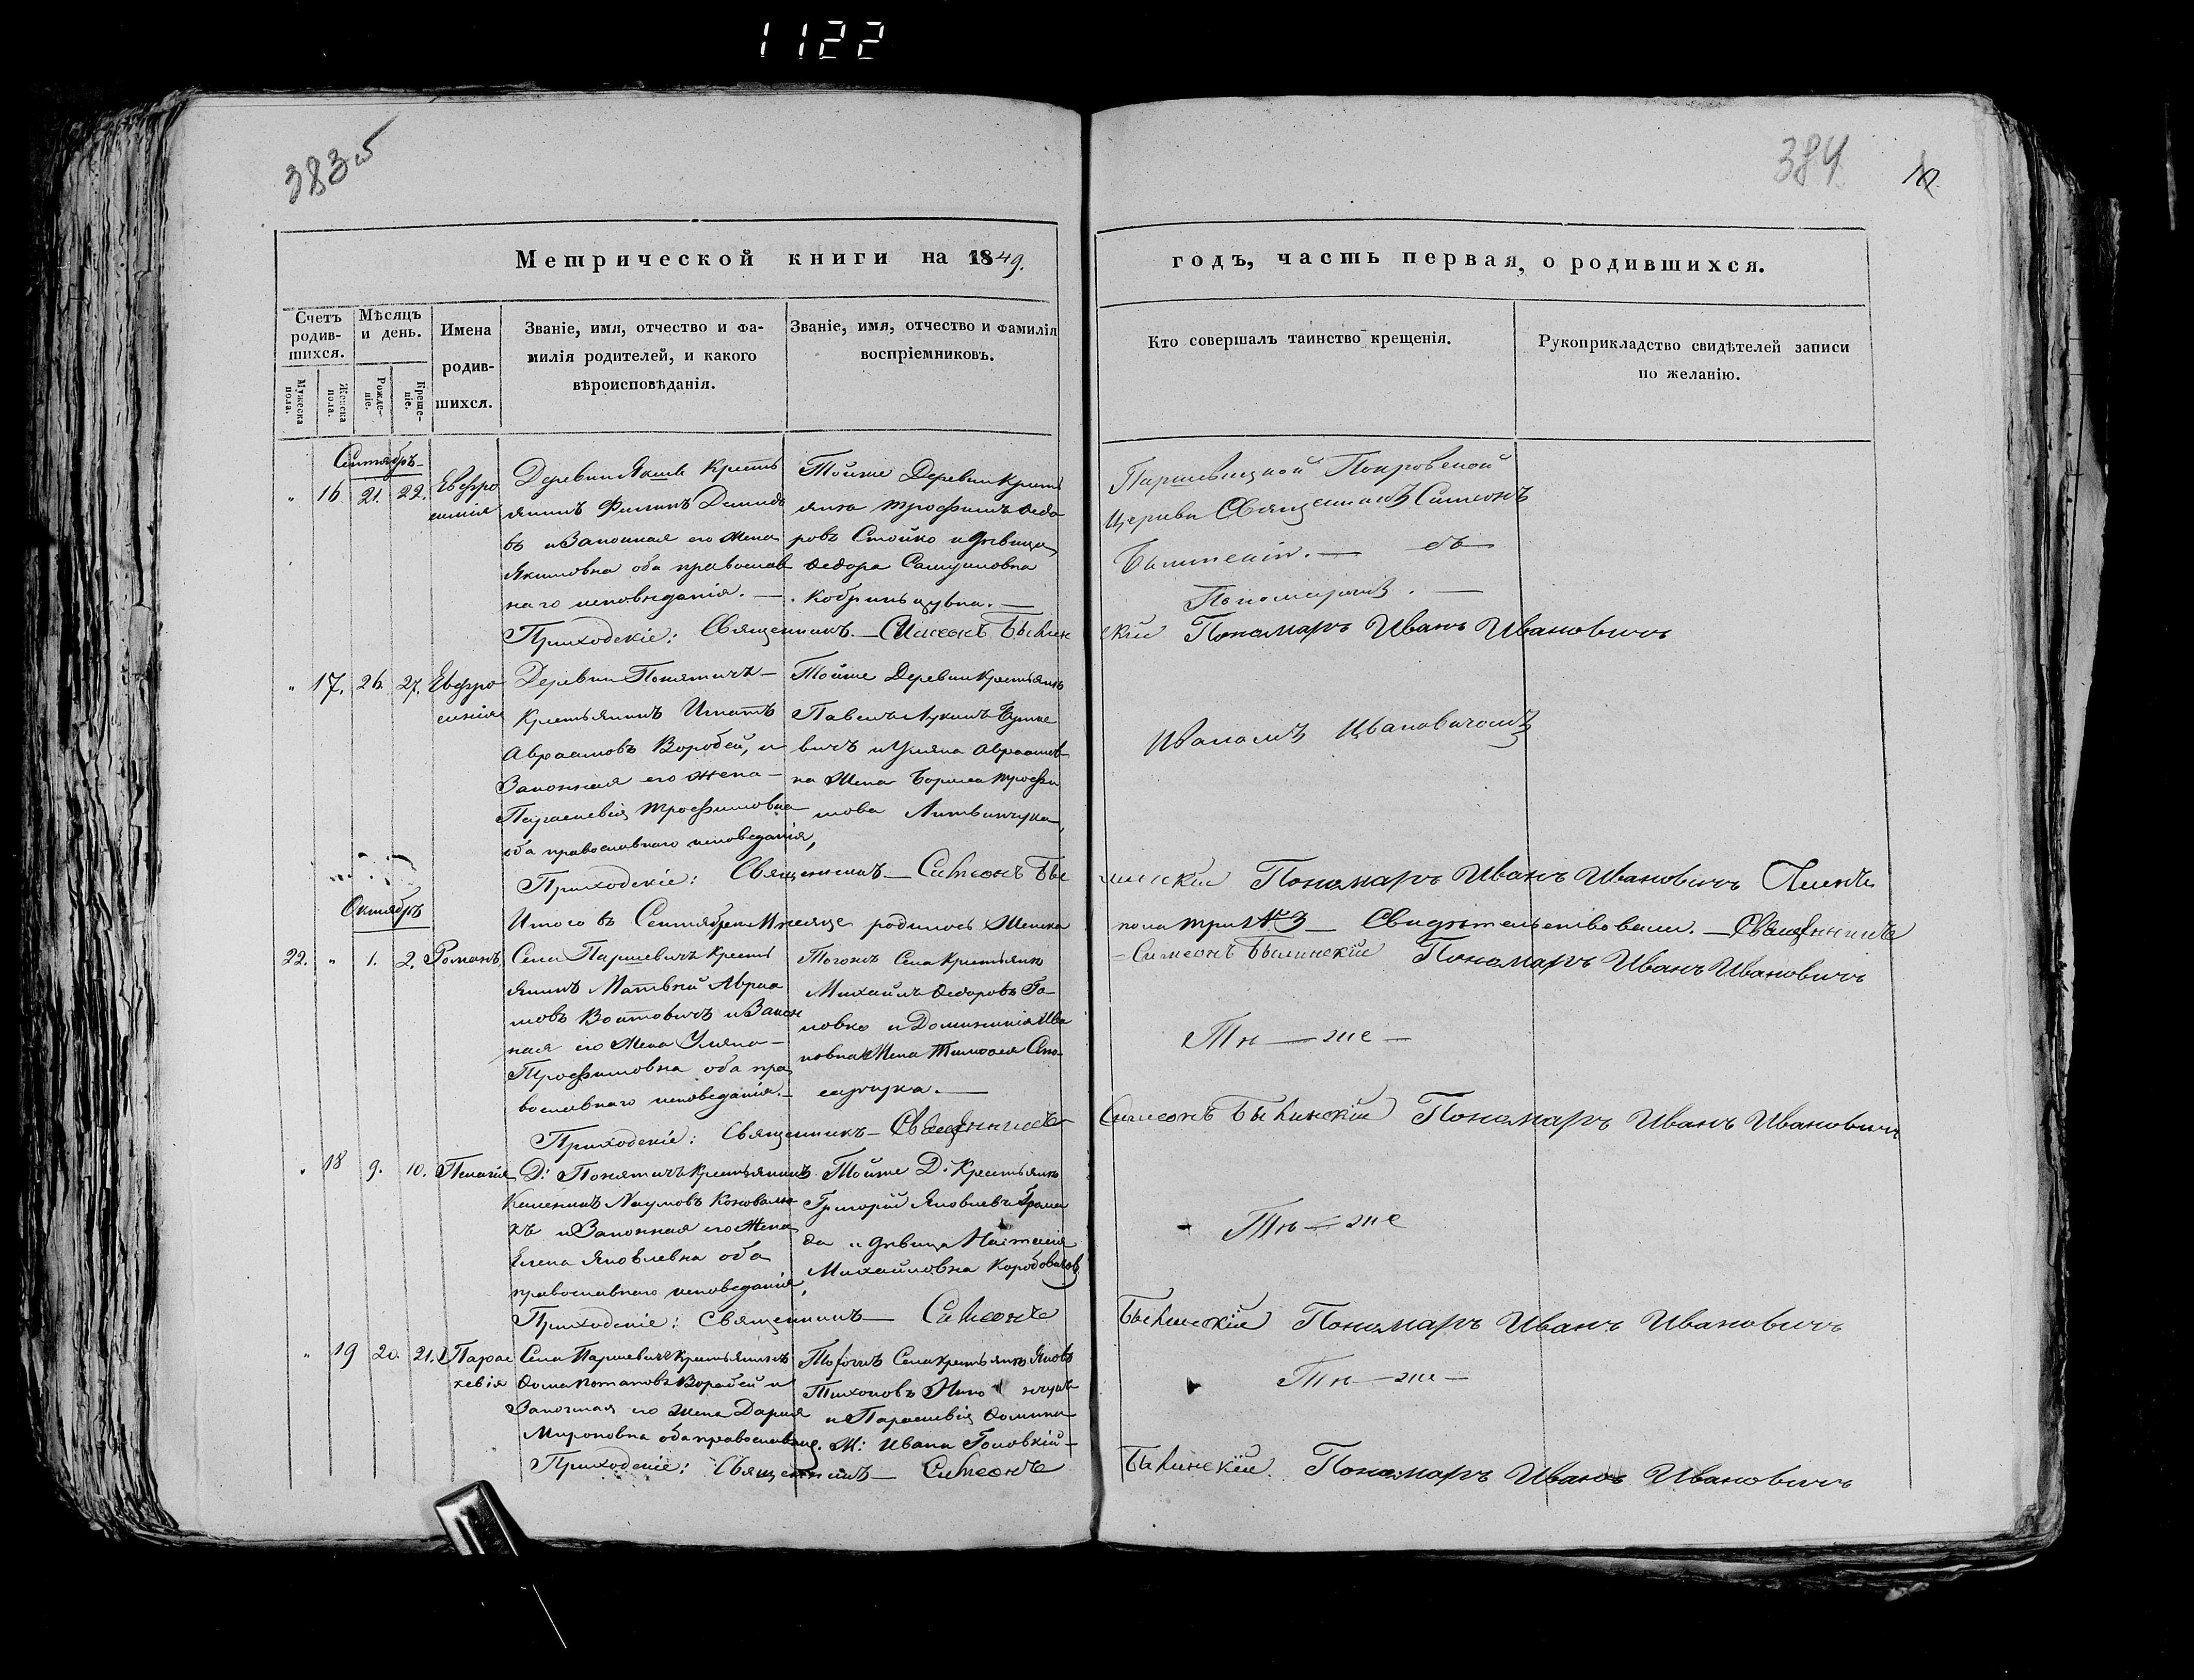 1122
383 об
384
Метрической книги на 1849.
годъ, часть первая, о родившихся.
Счетъ родив-
шихся.
Мужеска пола.
Женска пола.
Мѣсяцъ и день.
Рожде-
ніе.
Креще-
ніе.
Имена
родив-
шихся.
Званіе, имя, отчество и фа-
милія родителей, и какого
вѣроисповѣданія.
Званіе, имя, отчество и фамилія
воспріемниковъ.
Кто совершалъ таинство крещенія.
Рукоприкладство свидѣтелей записи
по желанію.
Сентябрь
" 16 21. 22. Евфро
синія
Деревни Якши Кресть
янинъ Филипъ Демидо
въ и Законная его Жена
Якимовна оба православ
наго исповѣданія.
Тойже Деревни Кресть
янка Трофимъ Федо
ровъ Стойко и дѣвица
Федора Самуиловна
Паршевицкой Покровской
Церкви Священникъ Симеонъ
съ
Пономаремъ.
Приходскіе: Священникъ. — Симеонъ Былин
скій Пономарь Иванъ Ивановичъ
" 17. 26. 27. Евфро
синія
Деревни Понятичъ
Крестьянинъ Игнатъ
Авраамовъ Воробей, и
Законная его Жена
Параскевія Трофимовна
оба православнаго исповеданія,
Тойже Деревни Крестьянинъ
Павелъ Лукинъ
вичъ и Уляна Авраамов
на Жена Бориса Трофи
мова Литвинчука,
Иваномъ Ивановичомъ
Приходскіе: Священникъ — Симеонъ Бы
линскій Пономарь Иванъ Ивановичъ
Октябрь
Итого въ Сентябрѣ Мѣсяце родилось Женска
пола три № 3 — Свидѣтельствовали. — Священникъ
Симеонъ Былинскій Пономарь Иванъ Ивановичъ
22. " 1. 2. Романъ.
Села Паршевичъ Кресть
янинъ Матвѣй Авраа
мовъ Войтовичъ и Закон
ная его Жена Уляна
Трофимовна оба пра
вославнаго исповеданія.
Тогожъ Села Крестьянинъ
Михаилъ Федоровъ Го
ловко и Домникія Ива
новна Жена Тимофея
Тѣ — же —
Приходскіе: Священникъ — Священникъ
Симеонъ Былинскій Пономарь Иванъ Ивановичъ
" 18 9. 10. Пелагія
Д: Понятичъ Крестьянинъ
Наумовъ Коновалю
къ и Законная его Жена
Елена Яковлевна оба
православнаго исповеданія,
Тойже Д: Крестьянинъ
Григорій Яковлевъ Грома
да и дѣвица Наталія
Михайловна
Тѣ — же
Приходскіе: Священникъ — Симеонъ
Былинскій Пономарь Иванъ Ивановичъ
" 19 20. 21. Парас
кевія
Села Паршевичъ Крестьянинъ
Фома Потаповъ Воробей и
Законная его Жена Дарія
Мироновна оба православные.
Тогожъ Села Крестьянинъ Яковъ
Тихоновъ
и Параскевія Фомина
Ж: Ивана Головкій
Тѣ — же —
Приходскіе: Священникъ — Симеонъ
Былинскій. Пономарь Иванъ Ивановичъ